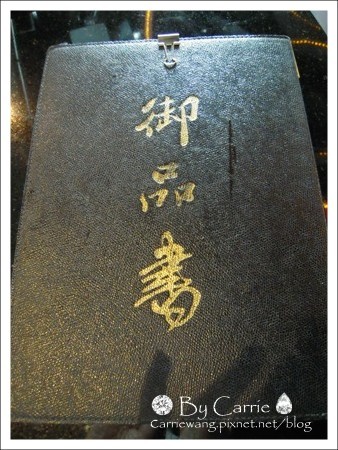 御
品
書
By Carrie
Carriewang.pixnet.net/blog